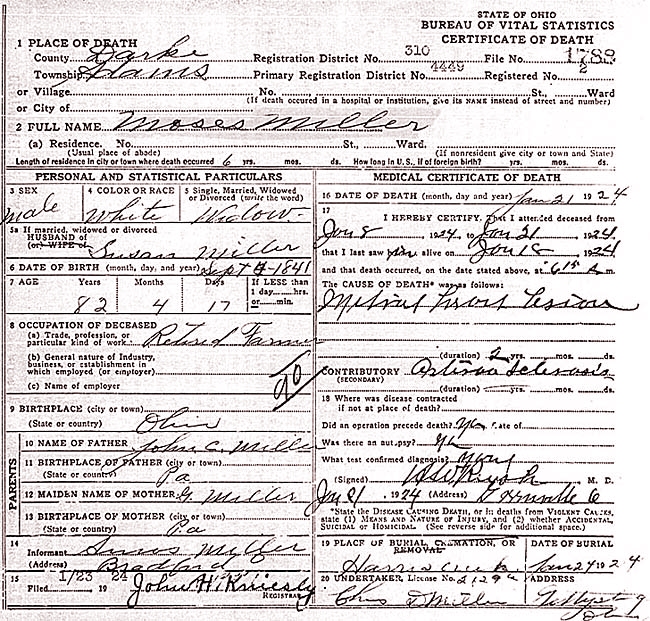 STATE OF OHIO
BUREAU OF VITAL STATISTICS
CERTIFICATE OF DEATH
1 PLACE OF DEATH
County Darke Registration District No. 310 File No. 1788
Township Adams Primary Registration District No. 4449 Registered No. 2
or Village No. St., Ward
(If death occured in a hospital or institution, give its NAME instead of street and number)
or City of
2 FULL NAME Moses Miller
(a) Residence. No. St., Ward.
(Usual place of abode) (If nonresident give city or town and State)
Length of residence in city or town where death occurred 6 yrs. mos. ds. How long in U.S., if of foreign birth? yrs. mos. ds.
PERSONAL AND STATISTICAL PARTICULARS
3 SEX
male
4 COLOR OR RACE
White
5 Single, Married, Widowed
or Divorced (write the word)
Widow
5a If married, widowed or divorced
HUSBAND OF
(or) WIFE OF
Susan Miller
6 DATE OF BIRTH (month, day, and year) Sept 4-1841
7 AGE Years Months Days If LESS than
1 day.....hrs.
or.....min.
82 4 17
8 OCCUPATION OF DECEASED
(a) Trade, profession, or
particular kind of work Retired Farmer
(b) General nature of Industry,
business, or establishment in
which employed (or employer)
(c) Name of employer
9 BIRTHPLACE (city or town)
(State or country) Ohio
PARENTS
10 NAME OF FATHER John C. Miller
11 BIRTHPLACE OF FATHER (city or town)
(State or country) Pa
12 MAIDEN NAME OF MOTHER Miller
13 BIRTHPLACE OF MOTHER (city or town)
(State or country) Pa
14
Informant Miller
(Address) Bradford
15 1/23 24
Filed , 19 John H. Kniesly
REGISTRAR
MEDICAL CERTIFICATE OF DEATH
16 DATE OF DEATH (month, day and year) Jan 21 1924
17
I HEREBY CERTIFY, That I attended deceased from
Jan 8 1924, to Jan 21 1924,
that I last saw him alive on Jan 18 1924,
and that death occurred, on the date stated above, at m.
The CAUSE OF DEATH* was as follows:
Mitral Heart Lesion
(duration) 2 yrs. mos. ds.
CONTRIBUTORY Arterio Sclerosis
(SECONDARY)
(duration) yrs. mos. ds.
18 Where was disease contracted
if not at place of death?
Did an operation precede death? No Date of
Was there an autopsy? No
What test confirmed diagnosis?
(Signed) M. D.
Jan 21, 1924 (Address)
*State the DISEASE CAUSING DEATH, or in deaths from VIOLENT CAUSES,
state (1) MEANS AND NATURE OF INJURY, and (2) whether ACCIDENTAL,
SUICIDAL or HOMICIDAL. (See reverse side for additional space.)
19 PLACE OF BURIAL, CREMATION, OR
REMOVAL
Harris Creek
DATE OF BURIAL
Jan 24 1924
20 UNDERTAKER, License No.
Miller
ADDRESS